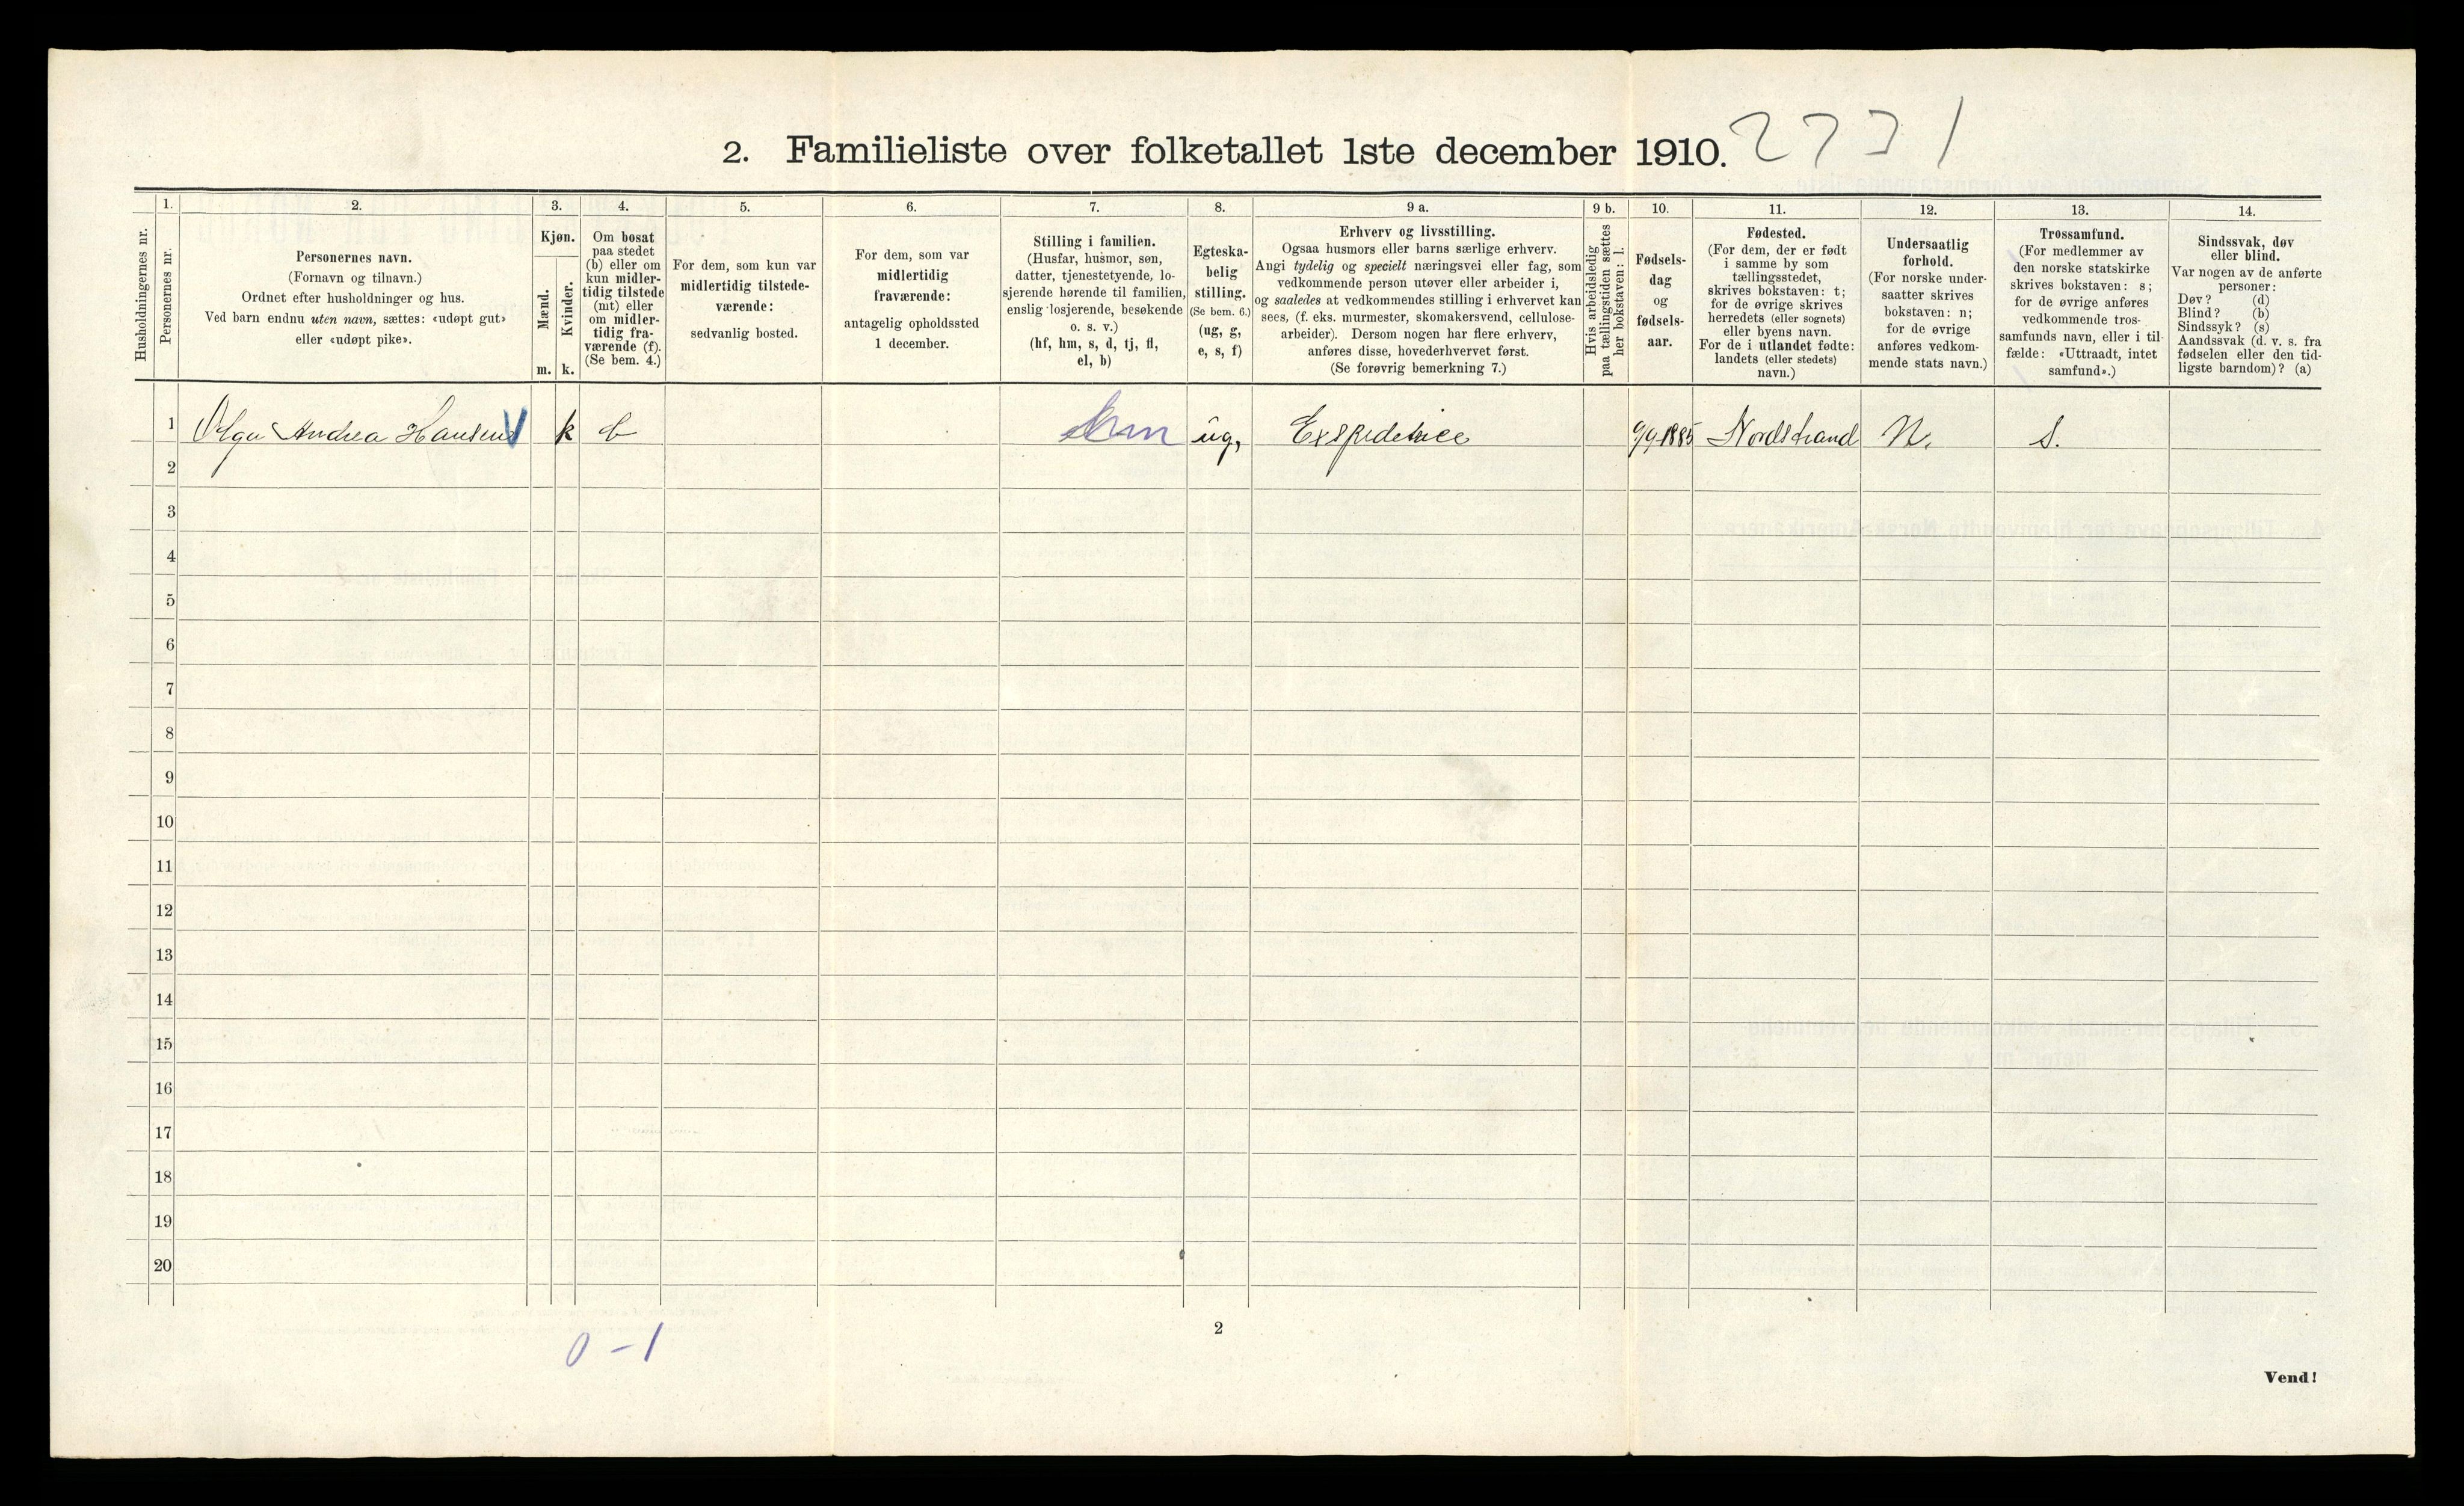 2. Familieliste over folketallet 1ste december 1910.
1. 2. 3. 4. 5. 6. 7. 8. 9 a. 9 b. 10. 11. 12. 13. 14.
Husholdningernes nr.
Personernes nr.
Personernes navn.
(Fornavn og tilnavn.)
Ordnet efter husholdninger og hus.
Ved barn endnu uten navn, sættes: «udøpt gut»
eller «udøpt pike».
Kjøn.
Mænd.
Kvinder.
m. k.
Om bosat
paa stedet
(b) eller om
kun midler-
tidig tilstede
(mt) eller
om midler-
tidig fra-
værende (f).
(Se bem. 4.)
For dem, som kun var
midlertidig tilstede-
værende:
sedvanlig bosted.
For dem, som var
midlertidig
fraværende:
antagelig opholdssted
1 december.
Stilling i familien.
(Husfar, husmor, søn,
datter, tjenestetyende, lo-
sjerende hørende til familien,
enslig losjerende, besøkende
o. s. v.)
(hf, hm, s, d, tj, fl,
el, b)
Egteska-
belig
stilling.
(Se bem. 6.)
(ug, g,
e, s, f)
Erhverv og livsstilling.
Ogsaa husmors eller barns særlige erhverv.
Angi tydelig og specielt næringsvei eller fag, som
vedkommende person utøver eller arbeider i,
og saaledes at vedkommendes stilling i erhvervet kan
sees, (f. eks. murmester, skomakersvend, cellulose-
arbeider). Dersom nogen har flere erhverv,
anføres disse, hovederhvervet først.
(Se forøvrig bemerkning 7.)
Hvis arbeidsledig
paa tællingstiden sættes
her bokstaven: l.
Fødsels-
dag
og
fødsels-
aar.
Fødested.
(For dem, der er født
i samme by som
tællingsstedet,
skrives bokstaven: t;
for de øvrige skrives
herredets (eller sognets)
eller byens navn.
For de i utlandet fødte:
landets (eller stedets)
navn.)
Undersaatlig
forhold.
(For norske under-
saatter skrives
bokstaven: n;
for de øvrige
anføres vedkom-
mende stats navn.)
Trossamfund.
(For medlemmer av
den norske statskirke
skrives bokstaven: s;
for de øvrige anføres
vedkommende tros-
samfunds navn, eller i til-
fælde: «Uttraadt, intet
samfund».)
Sindssvak, døv
eller blind.
Var nogen av de anførte
personer:
Døv? (d)
Blind? (b)
Sindssyk? (s)
Aandssvak (d. v. s. fra
fødselen eller den tid-
ligste barndom)? (a)
1 Olga Andrea Hansen k b ug, Exspeditrice 9/4 1885 Nordstrand N. S.
2
3
4
5
6
7
8
9
10
11
12
13
14
15
16
17
18
19
20
0 - 1
2
Vend!